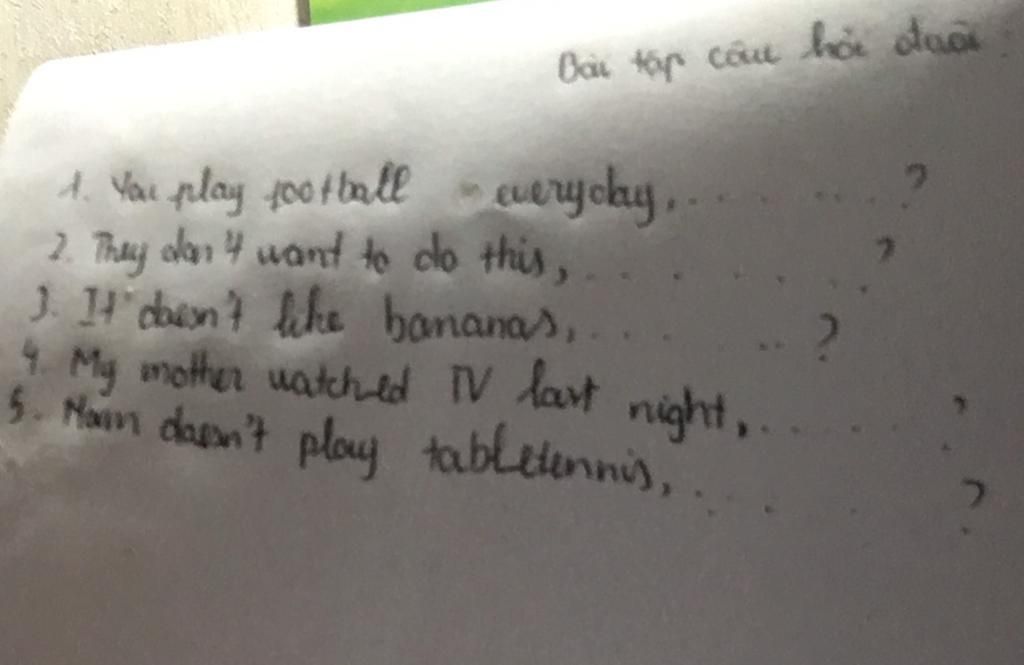 Bài tập câu hỏi đuôi:
1. You play football everyday, . . . . . . . . ?
2. They don't want to do this, . . . . . . . ?
3. It doesn't like bananas, . . . . . . ?
4. My mother watched TV last night, . . . . . ?
5. Nam doesn't play tabletennis, . . . . ?